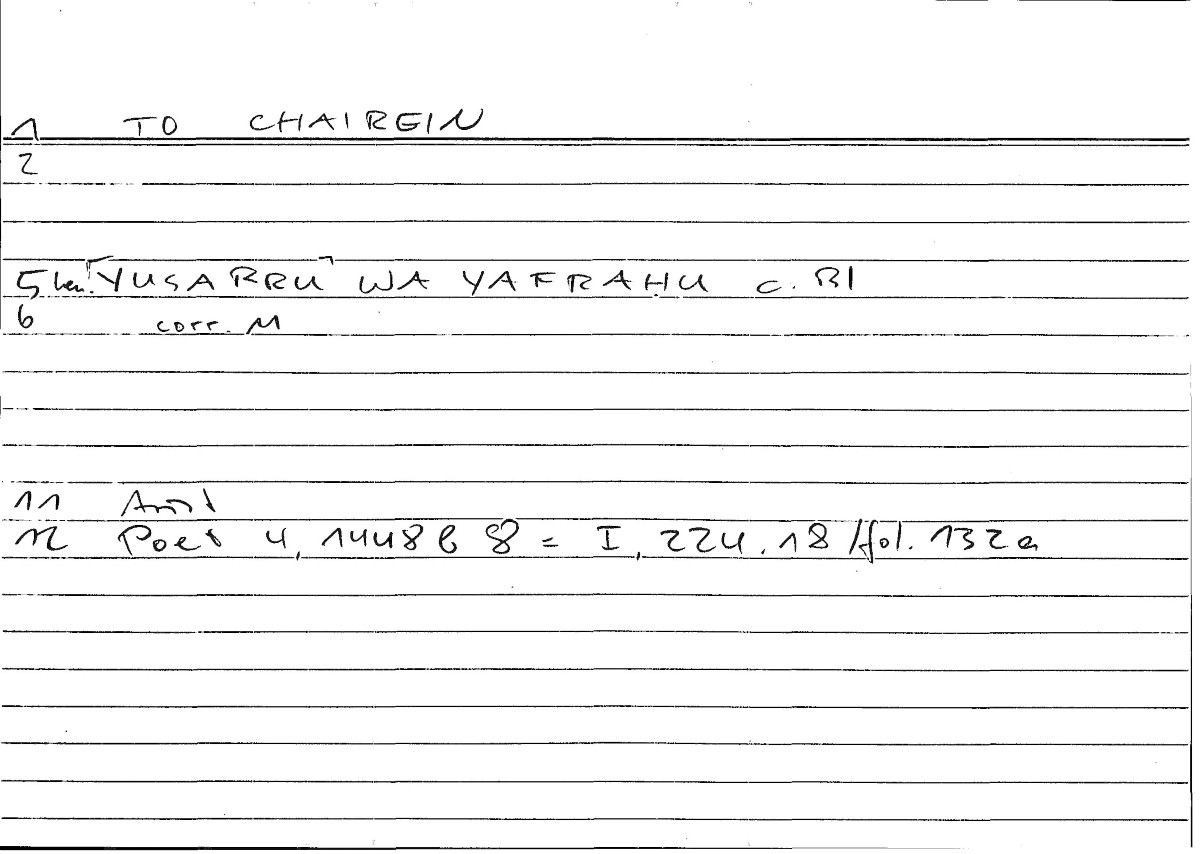 1 TO CHAIREIN
2
5 hen. ⌜YUSARRU⌝ WA YAFRAḤU c. BI
6 corr. M
11 Arist
12 Poet 4, 1448b8 = I, 224.18/fol. 132a